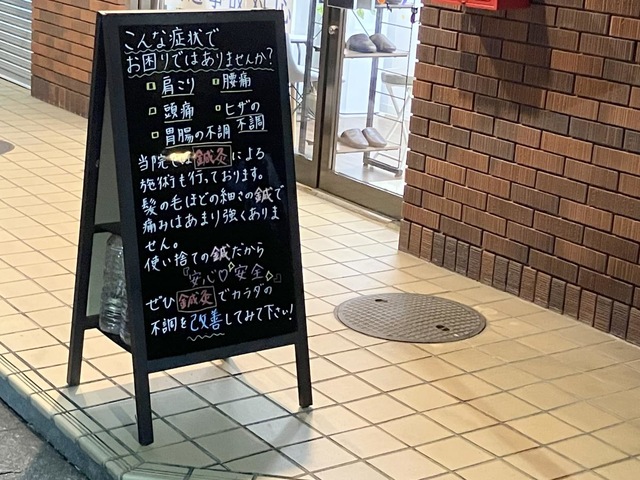 こんな症状で
お困りではありませんか?
肩こり 腰痛
頭痛 ヒザの
胃腸の不調 不調
当院では鍼灸による
施術も行っております。
髪の毛ほどの細さの鍼で
痛みはあまり強くありま
せん。
使い捨ての鍼だから
『安心♡安全』
ぜひ鍼灸でカラダの
不調を改善してみて下さい!